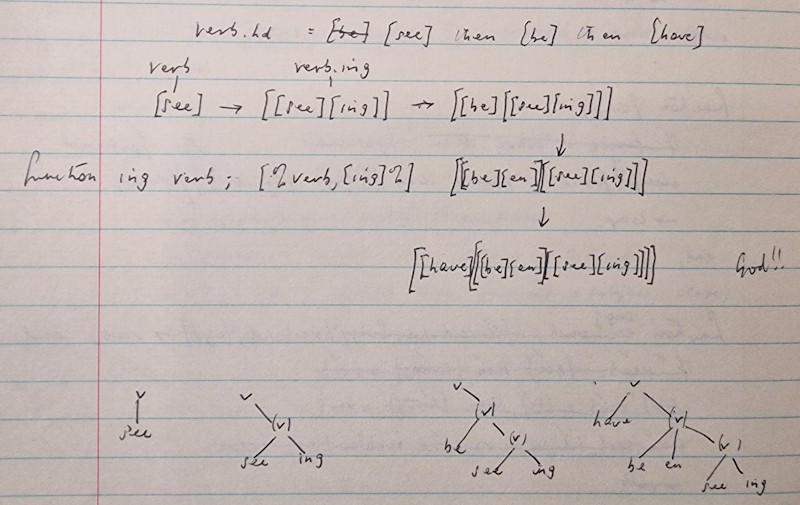 verb.hd = [be] [see] then [be] then [have]
verb verb.ing
[see] → [[see][ing]] → [[be][[see][ing]]]
↓
function ing verb; [% verb, [ing] %] [[[be][en]][[see][ing]]]
↓
[[have][[[be][en]][[see][ing]]]] God!!
v v v v
see (v) (v) have (v)
see ing be (v) be en (v)
see ing see ing